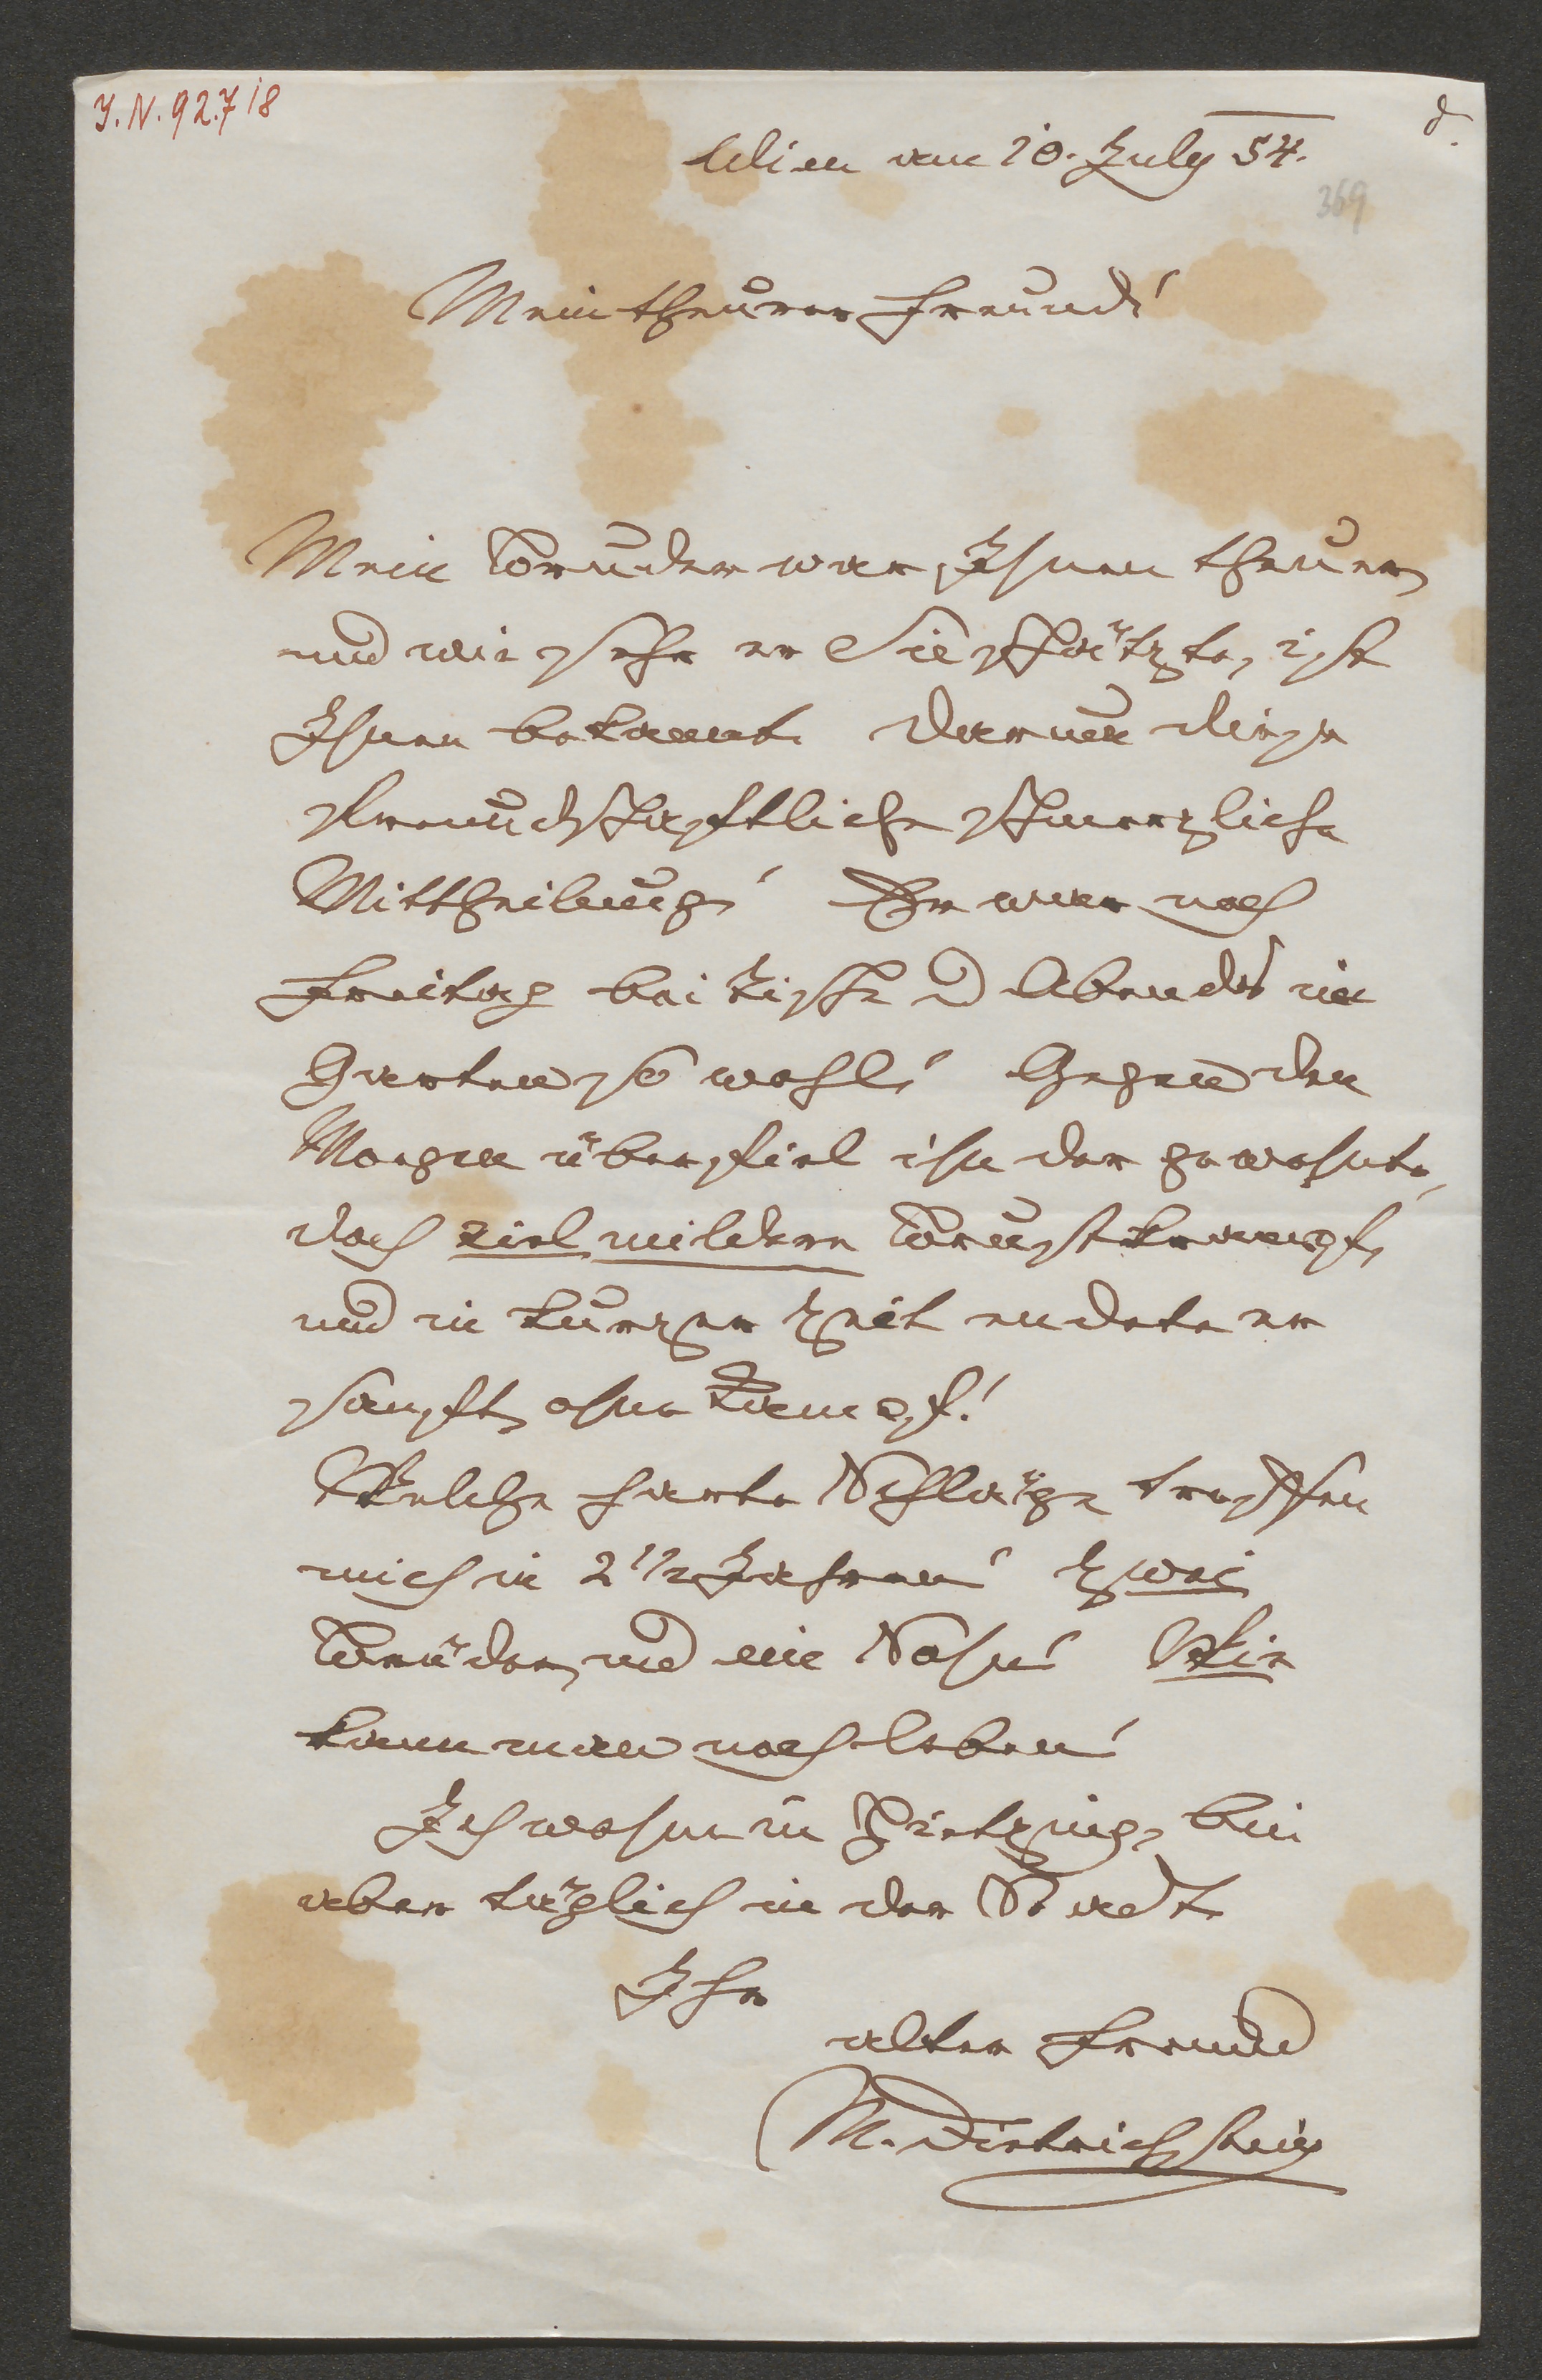 J.N. 92.718
d.
Wien am 10. July 54.
369
Mein theurer Freund!
Mein Bruder war Ihnen theuer,
und wie sehr er Sie schätzte, ist
Ihnen bekannt. Darum diese
freundschaftliche schmerzliche
Mittheilung! Er war noch
Freitag bei Tische u Abends im
Garten so wohl! Gegen den
Morgen überfiel ihn der gewohnte,
doch viel mildere Brustkrampf,
und in kurzer Zeit endete er
sanft, ohne Kampf!
Welche harte Schläge treffen
mich in 2 1/2 Jahren! Zwei
Brüder, und ein Sohn! Wie
kann man noch leben!
Ich wohne in Hietzing, bin
aber täglich in der Stadt.
Ihr
alter Freund
M. Dietrichstein